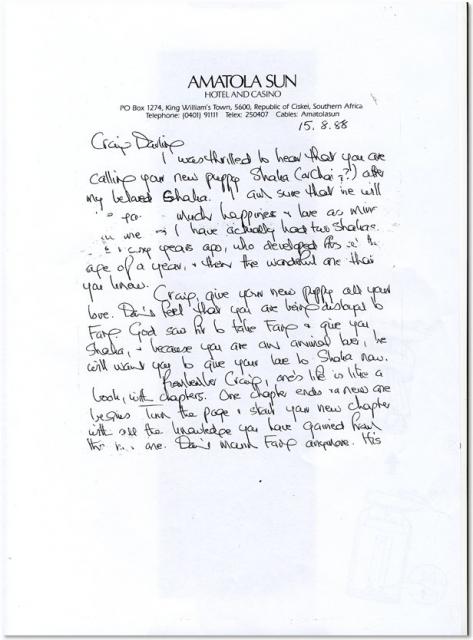 AMATOLA SUN
HOTEL AND CASINO
PO Box 1274, King William's Town, 5600, Republic of Ciskei, Southern Africa
Telephone: (0401) 91111 Telex: 250407 Cables: Amatolasun
15.8.88
Craig Darling
I was thrilled to hear that you are
calling your new puppy Shaka (or Chai ??) after
my beloved Shaka. I am sure that he will
much happiness + love as mine
me I have actually had two Shakas.
years ago, who developed fits at the
age of a year, + then the wonderful one that
you know.
Craig, give your new puppy all your
love. Don't feel that you are being disloyal to
Fang. God saw fit to take Fang + give you
Shaka, + because you are an animal lover, he
will want you to give your love to Shaka now.
Remember Craig, one's life is like a
book, with chapters. One chapter ends + a new one
begins Turn the page + start your new chapter
with all the knowledge you have gained from
one. Don't mourn Fang anymore. His